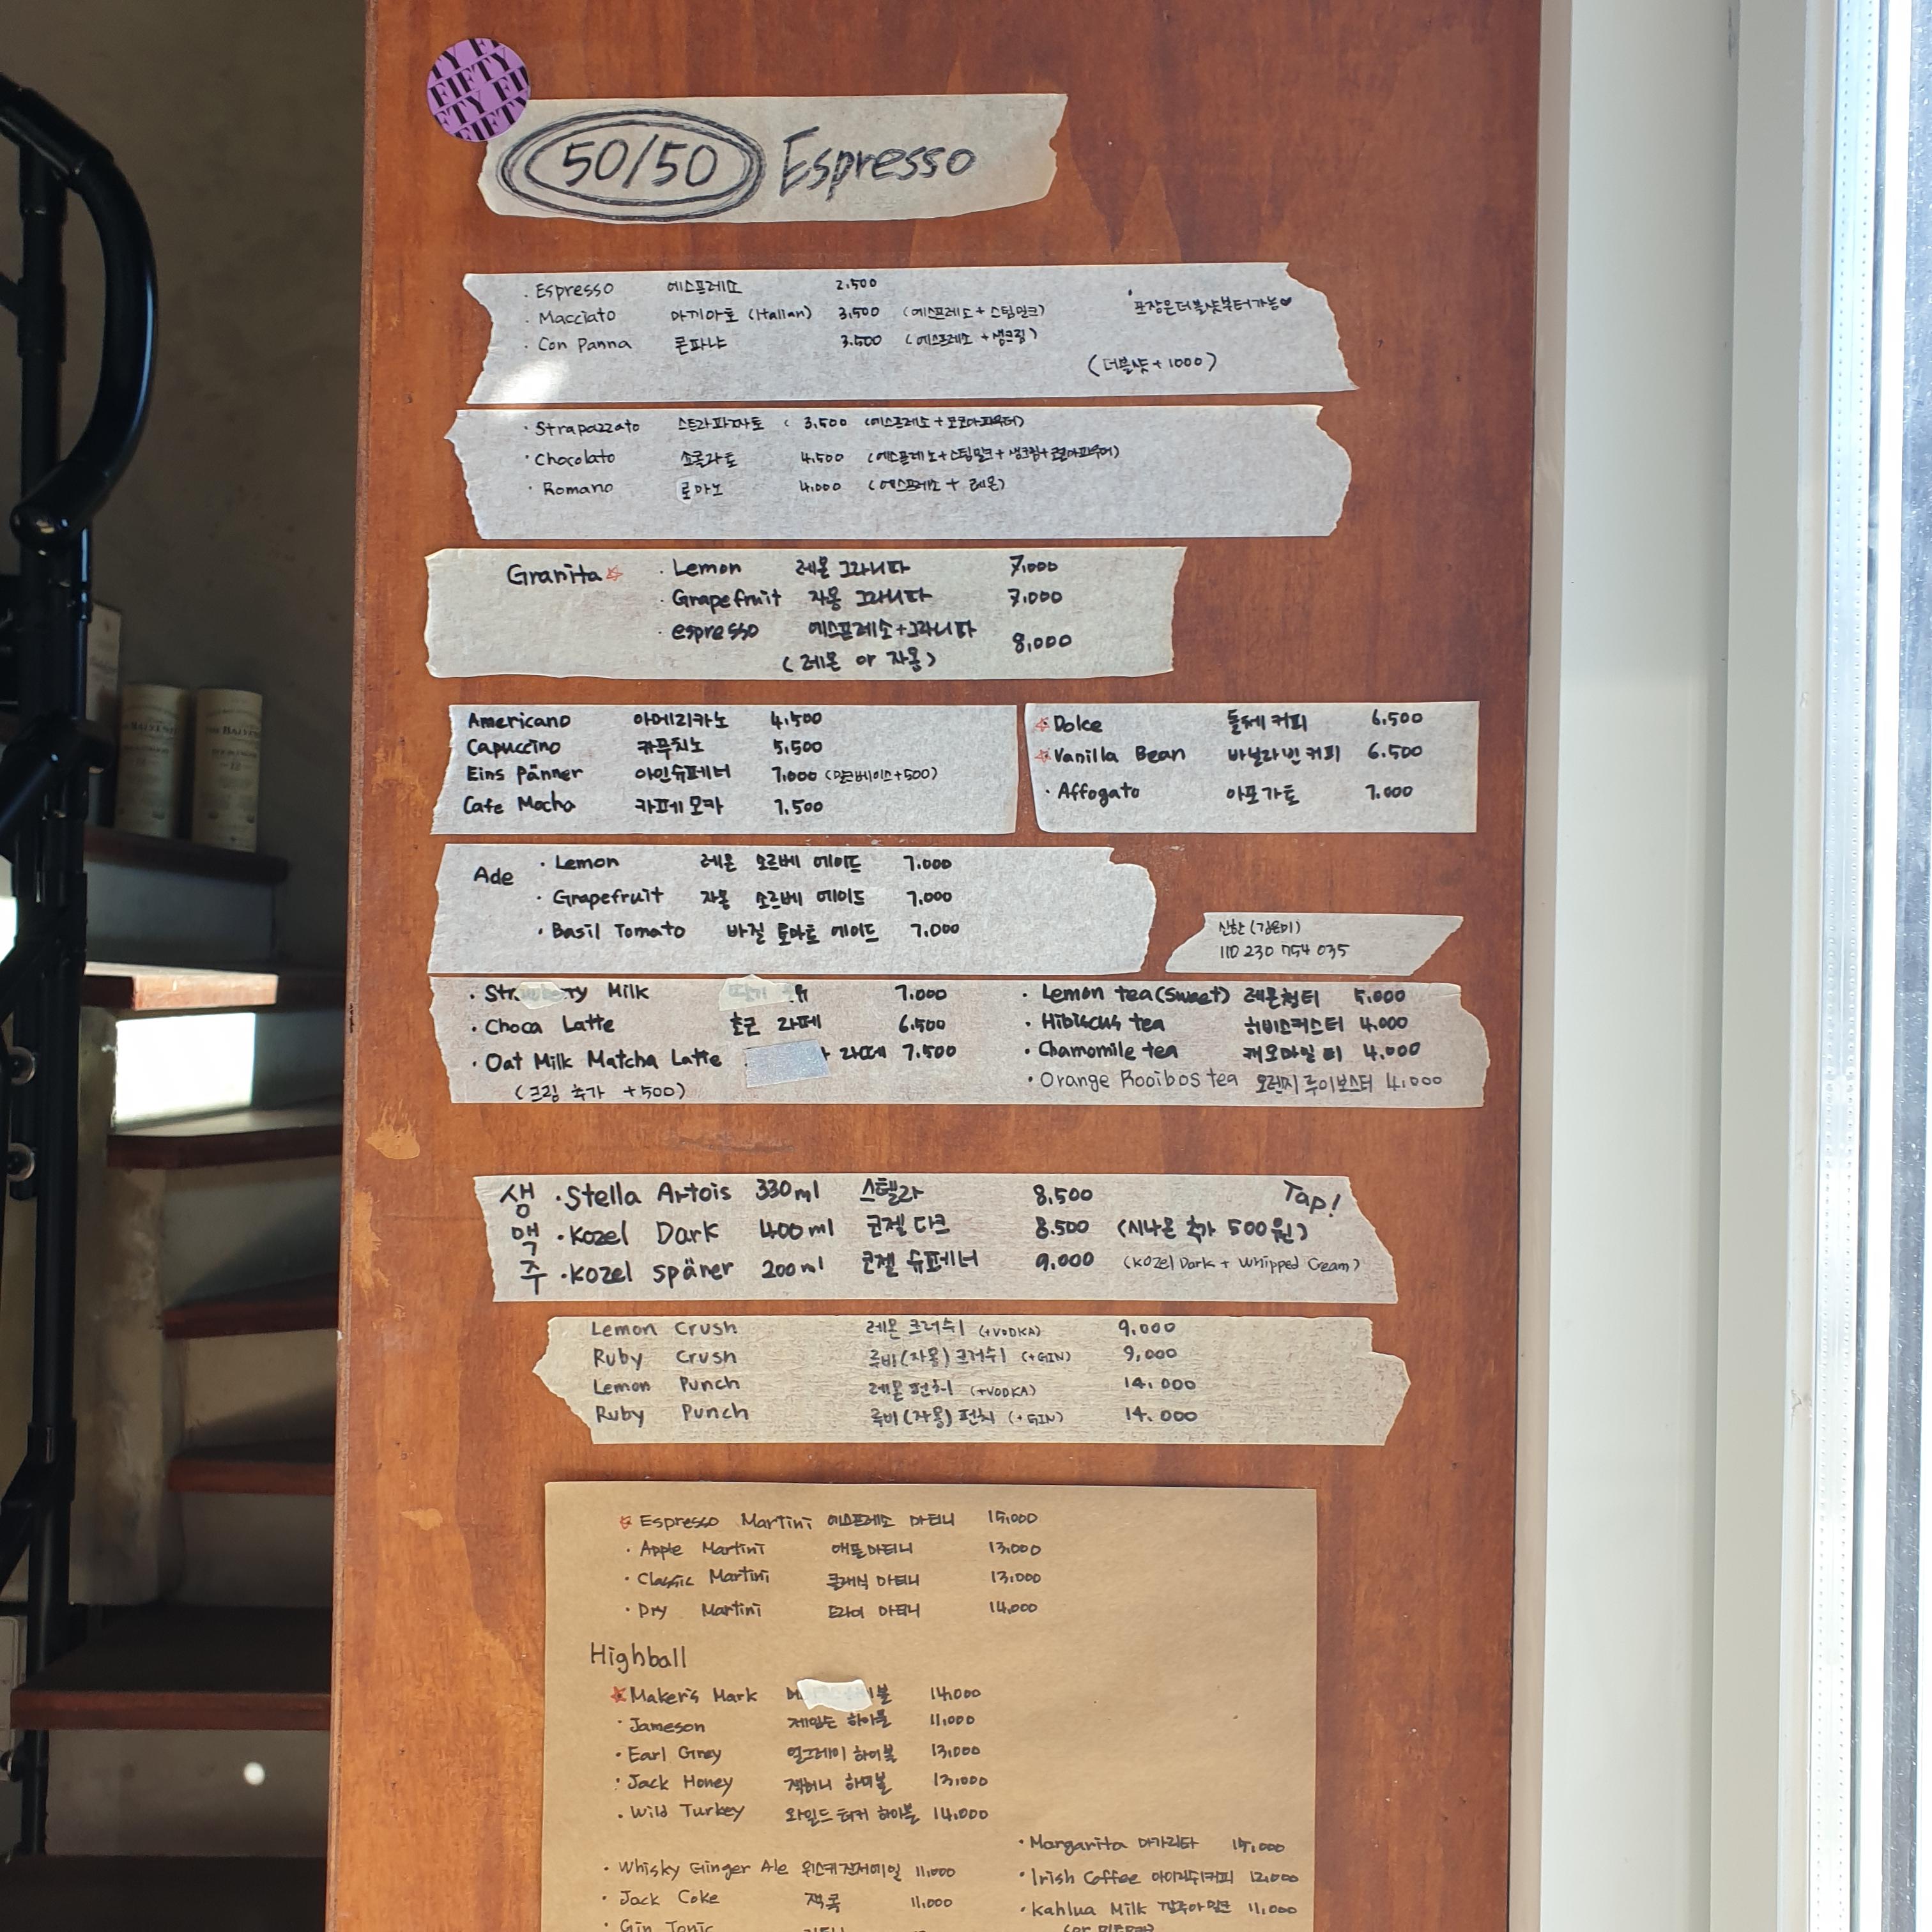 FIFTY
50/50 Espresso
· Espresso 에스프레쏘 2.500
· Macciato 마끼아토 (Italian) 3.500 (에스프레소 + 스팀밀크)
· Con Panna 콘파냐 3.500 (에스프레소 + 생크림)
포장은 더블샷부터 가능♥
(더블샷 + 1000)
· Strapazzato 스트라파짜토 3.500 (에스프레소 + 코코아파우더)
· Chocolato 쇼콜라토 4.500 (에스프레소 + 스팀밀크 + 생크림 + 코코아파우더)
· Romano 로마노 4.000 (에스프레소 + 레몬)
Granita☆ · Lemon 레몬 그라니타 7.000
· Grapefruit 자몽 그라니타 7.000
· espresso 에스프레소+그라니타 8,000
(레몬 or 자몽)
Americano 아메리카노 4.500
Capuccino 카푸치노 5.500
Eins Pänner 아인슈페너 7.000 (밀크베이스+500)
Cafe Mocha 카페 모카 7.500
☆ Dolce 돌체 커피 6.500
☆ Vanilla Bean 바닐라빈 커피 6.500
· Affogato 아포가토 7.000
Ade · Lemon 레몬 소르베 에이드 7.000
· Grapefruit 자몽 소르베 에이드 7.000
· Basil Tomato 바질 토마토 에이드 7.000
110 230 754 035
· Strawberry Milk 딸기 7.000
· Choca Latte 초코 라떼 6.500
· Oat Milk Matcha Latte 라떼 7.500
(크림 추가 +500)
· Lemon tea(Sweet) 레몬청티 5.000
· Hibiscus tea 히비스커스티 4.000
· Chamomile tea 캐모마일 티 4.000
· Orange Rooibos tea 오렌지 루이보스티 4.000
생맥주
· Stella Artois 330ml 스텔라 8,500 Tap!
· Kozel Dark 400ml 코젤 다크 8.500 (시나몬 추가 500원)
· Kozel späner 200ml 코젤 슈페너 9.000 (Kozel Dark + Whipped Cream)
Lemon Crush 레몬 크러쉬 (+VODKA) 9.000
Ruby Crush 루비(자몽) 크러쉬 (+GIN) 9,000
Lemon Punch 레몬 펀치 (+VODKA) 14.000
Ruby Punch 루비(자몽) 펀치 (+GIN) 14.000
☆ Espresso Martini 에스프레소 마티니 15,000
· Apple Martini 애플마티니 13,000
· Classic Martini 클래식 마티니 13,000
· Dry Martini 드라이 마티니 14,000
Highball
★ Maker's Mark 볼 14,000
· Jameson 제임슨 하이볼 11,000
· Earl Grey 얼그레이 하이볼 13,000
· Jack Honey 잭허니 하이볼 13,000
· Wild Turkey 와일드 터키 하이볼 14,000
· Whisky Ginger Ale 위스키진저에일 11,000
· Jack Coke 잭콕 11,000
· Gin Tonic
· Margarita 마가리타 15,000
· Irish Coffee 아이리쉬커피 12,000
· Kahlua Milk 깔루아밀크 11,000